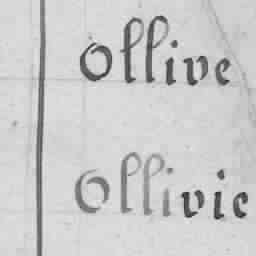 Ollive
Ollivie